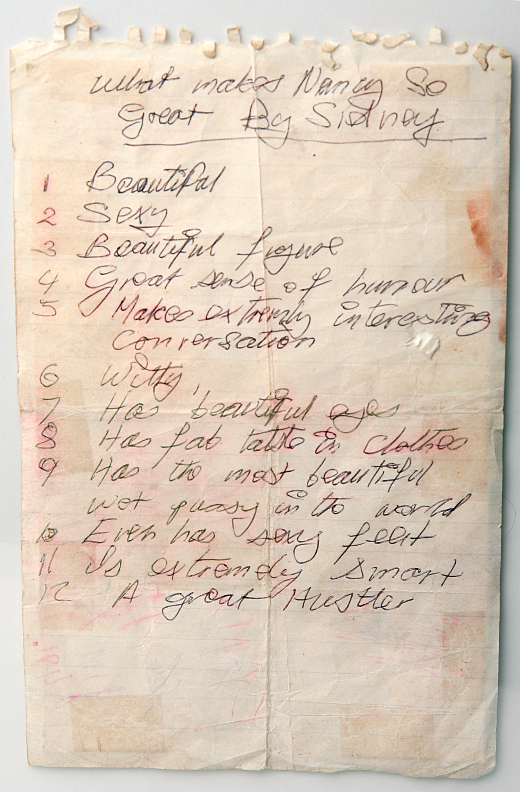 What makes Nancy So
Great By Sidney
1 Beautiful
2 Sexy
3 Beautiful figure
4 Great sense of humour
5 Makes extremly interesting
conversation
6 Witty
7 Has beautiful eyes
8 Has fab taste in clothes
9 Has the most beautiful
wet pussy in the world
10 Even has sexy feet
11 Is extremely smart
12 A great Hustler